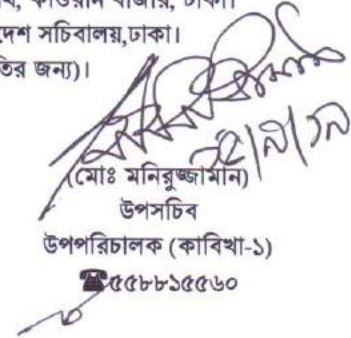 কাওরান বাজার, ঢাকা।
সচিবালয়,ঢাকা।
জন্য)।
(মোঃ মনিরুজ্জামান)
উপসচিব
উপপরিচালক (কাবিখা-১)
☎৫৫৮৮১৫৫৬০